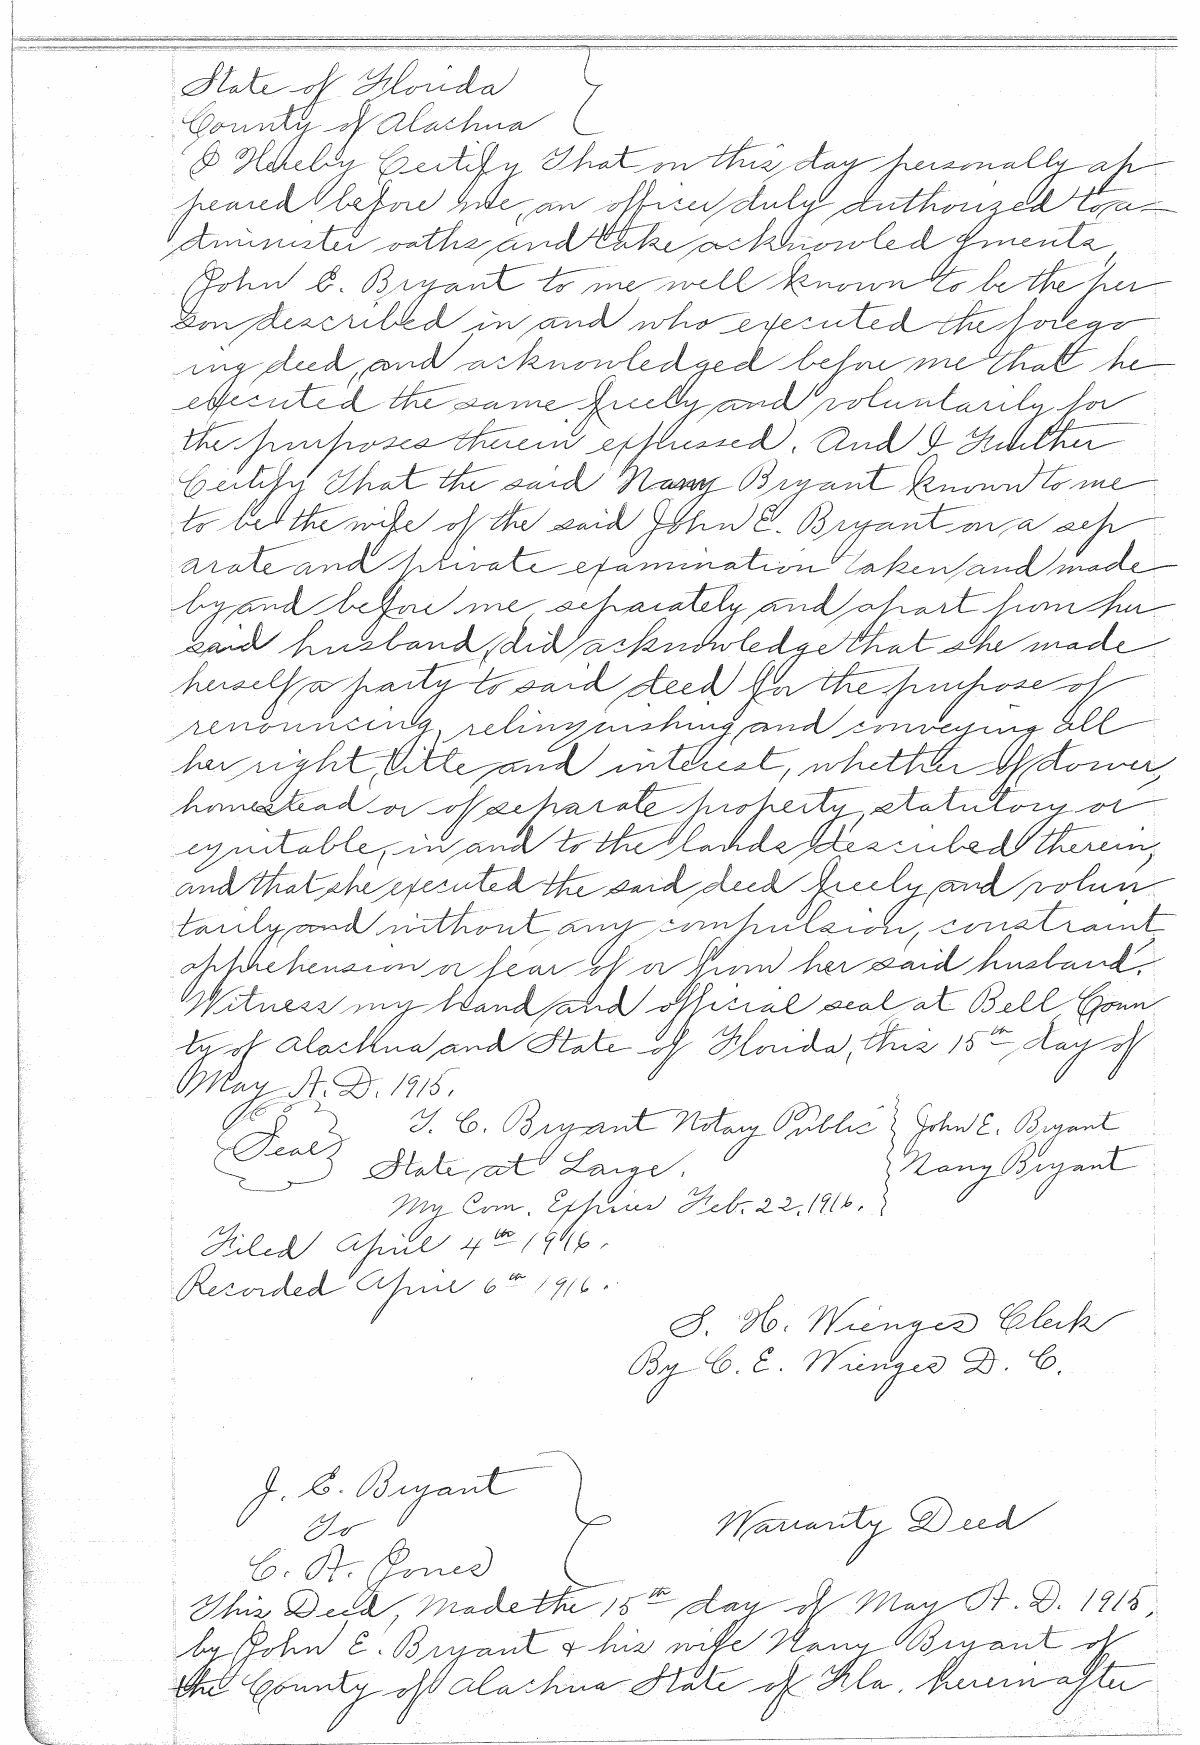 State of Florida
County of Alachua
I Hereby Certify That on this day personally ap
peared before me, an officer duly authorized to a-
dminister oaths and take acknowled gments,
John E. Bryant to me well known to be the per
son described in and who executed the forego
ing deed, and acknowledged before me that he
executed the same freely and voluntarily for
the purposes therein expressed. And I Further
Certify That the said Nany Bryant known to me
to be the wife of the said John E. Bryant on a sep
arate and private examination taken and made
by and before me, separately and apart from her
said husband, did acknowledge that she made
herself a party to said deed for the purpose of
renouncing, relinquishing and conveying all
her right, title and interest, whether of dower,
homestead or of separate property, statutory or
equitable, in and to the lands described therein,
and that she executed the said deed freely and volun
tarily and without any compulsion, constraint,
apprehension or fear of or from her said husband.
Witness my hand and official seal at Bell Coun
ty of Alachua and State of Florida, this 15th day of
May A. D. 1915.
Seal
T. C. Bryant Notary Public
State at Large.
My Com. Expires Feb. 22, 1916.
John E. Bryant
Nany Bryant
Filed April 4th 1916.
Recorded April 6th 1916.
S. H. Wienges Clerk
By C. E. Wienges D. C.
J. E. Bryant
To
C. A. Jones
Warranty Deed
This Deed, Made the 15th day of May A. D. 1915,
by John E. Bryant & his wife Nany Bryant of
the County of Alachua State of Fla. hereinafter